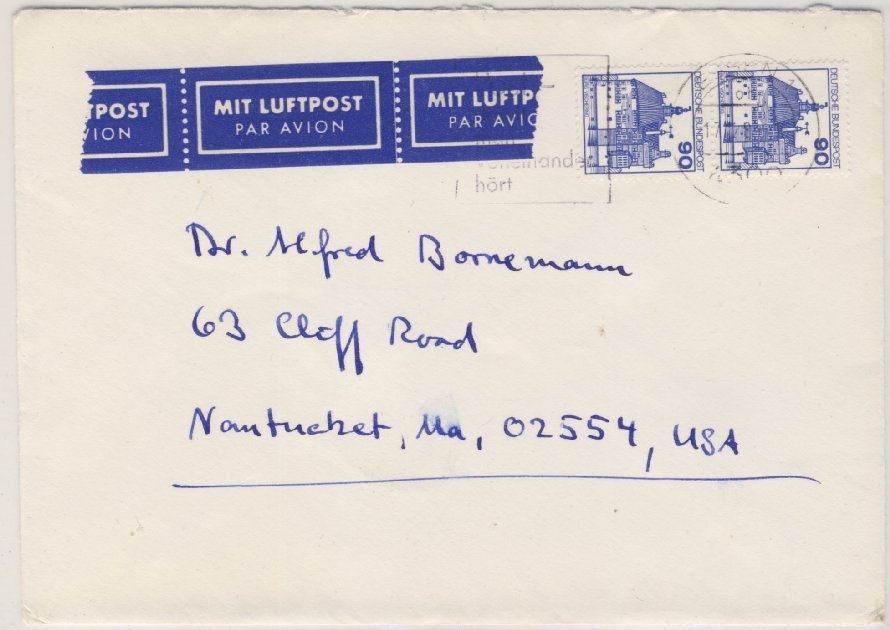 POST MIT LUFTPOST MIT LUFTP
VION PAR AVION PAR AVIO
voneinander
hört
DEUTSCHE BUNDESPOST 90
DEUTSCHE BUNDESPOST 90
4300
Dr. Alfred Bornemann
63 Cliff Road
Nantucket, Ma, 02554, USA